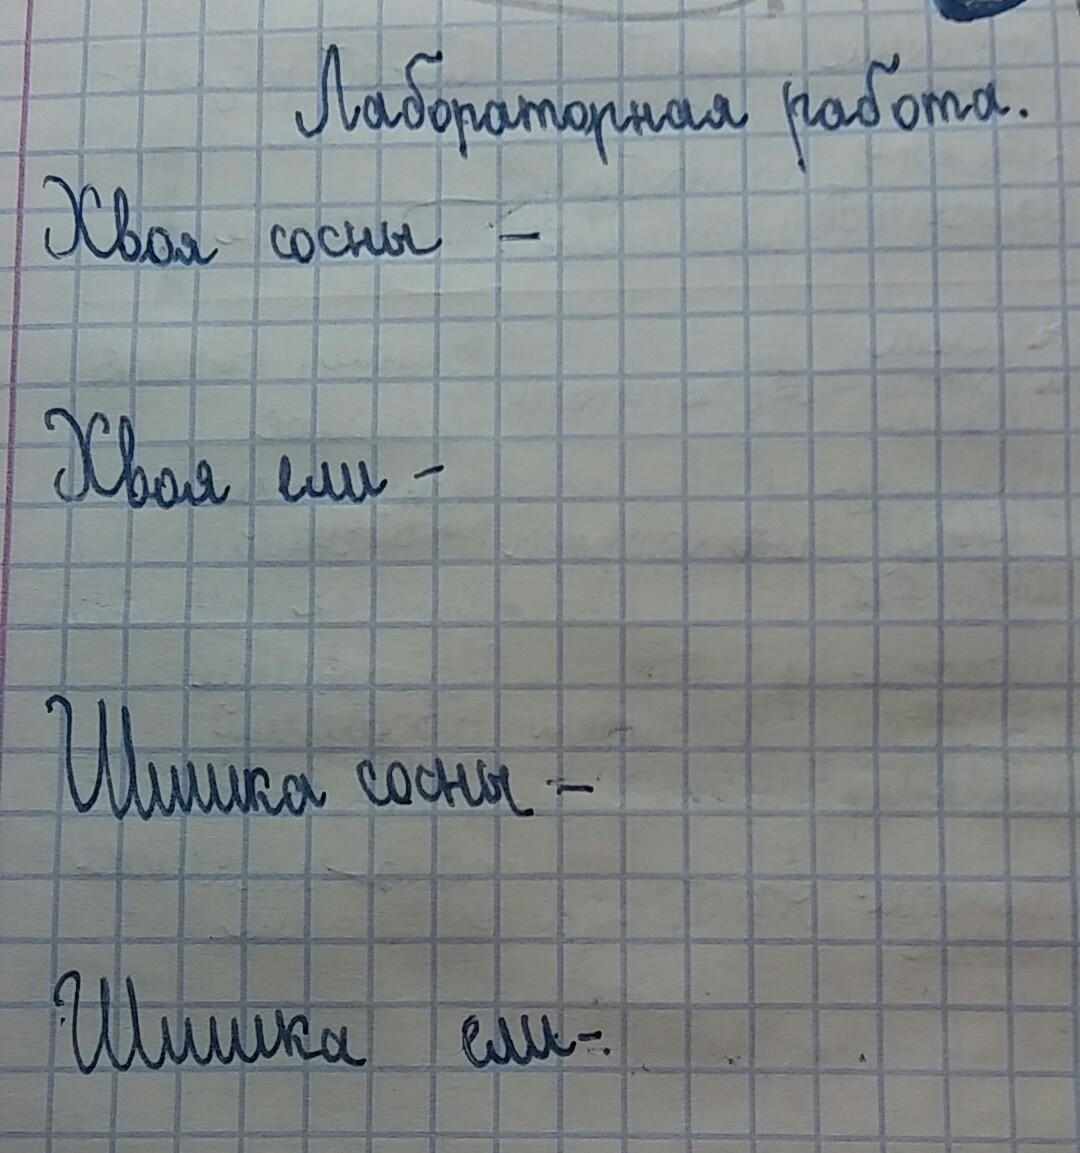 Лабораторная работа.
Хвоя сосны -
Хвоя ели -
Шишка сосны -
Шишка ели -